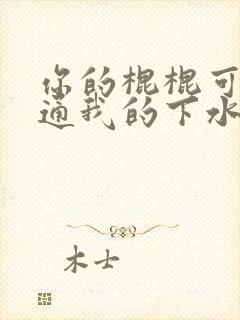 你的棍棍可
通我的下水
木士